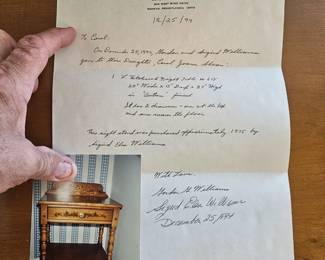 12/25/94
To Carol:
On December 25, 1994, Gordon and Sigrid Williams
gave to their Daughter, Carol
1 L. Hitchcock Night Table
Wide x 15" Deep x 25" High
in finish
It has two drawers - one at the top
and one nearer the floor.
This night stand was purchased approximately 1975 by
Sigrid Elsa Williams
With Love,
Gordon G. Williams
Sigrid Elsa Williams
December 25, 1994